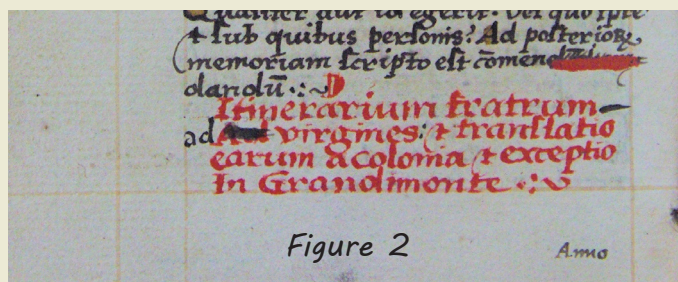 Qualiter aut id egerit: vel quo ipse
⁊ sub quibus personis? Ad posterioꝝ
memoriam scripto est cōmen
dandū .:
Itinerarium fratrum
ad virgines: ⁊ translatio
earum a Colonia ⁊ exceptio
In Grandimonte .:
Figure 2
Anno